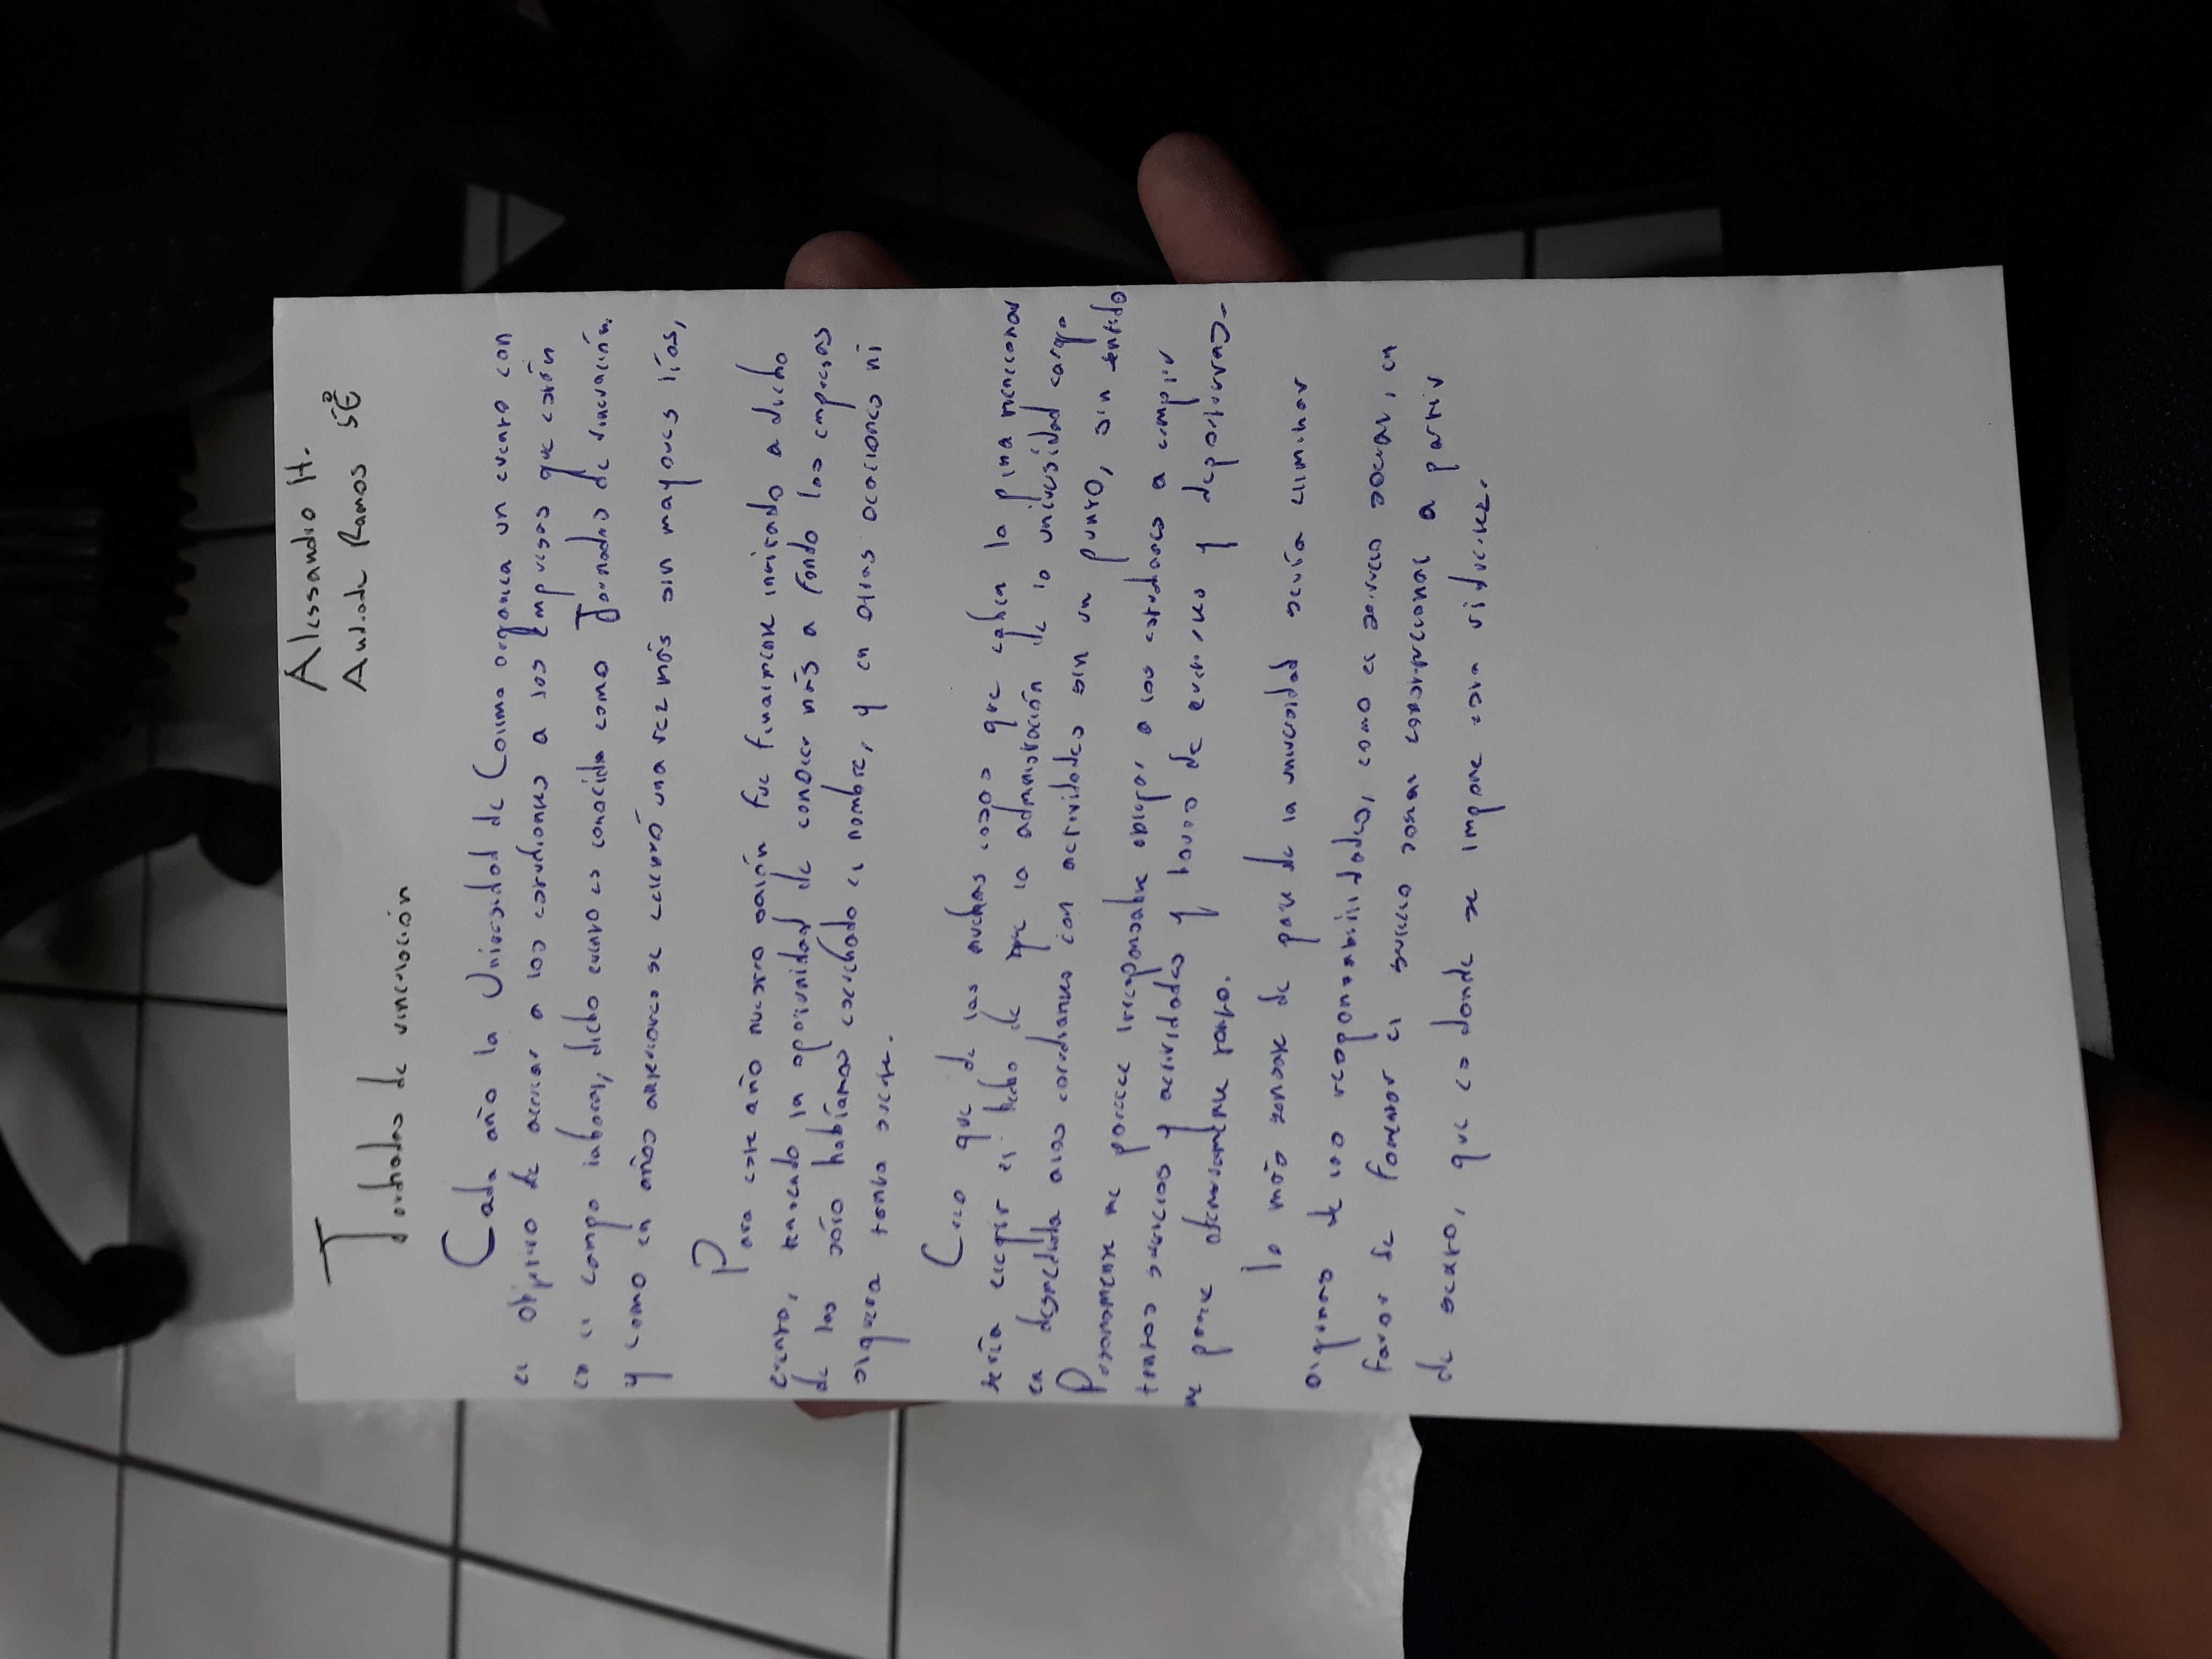 Alessandro H.
Andrade Ramos 5°E
Jornadas de vinculación
Cada año la Universidad de Colima organica un evento con
el objetivo de acercar a los estudiantes a las empresas que están
en el campo laboral, dicho evento es conocido como Jornadas de vinculación.
y como en años anteriores se celebró una vez más sin mayores líos,
Para este año nuestro salón fue finalmente invitado a dicho
evento, teniendo la oportunidad de conocer más a fondo las empresas
de las sólo habíamos escuchado el nombre, y en otras ocaciones ni
siquiera tenía suerte.
Creo que de las muchas cosas que caben la pena mencionar
sería elegir el hecho de que la administración de la universidad carga
en desmedida a los estudiantes con actividades sin un punto, sin sentido
Personamente me parece irresponsable obligar a los estudiantes a cumplir
tantos servicios y actividades y horas de y deportivas.
me parece tonto.
lo más sensate de parte de la universidad sería eliminar
algunas de las responsabilidades, como el servicio social, en
favor de fomentar el servicio social constitucional a partir
de sexto, que es donde se impone esta ridiculez.